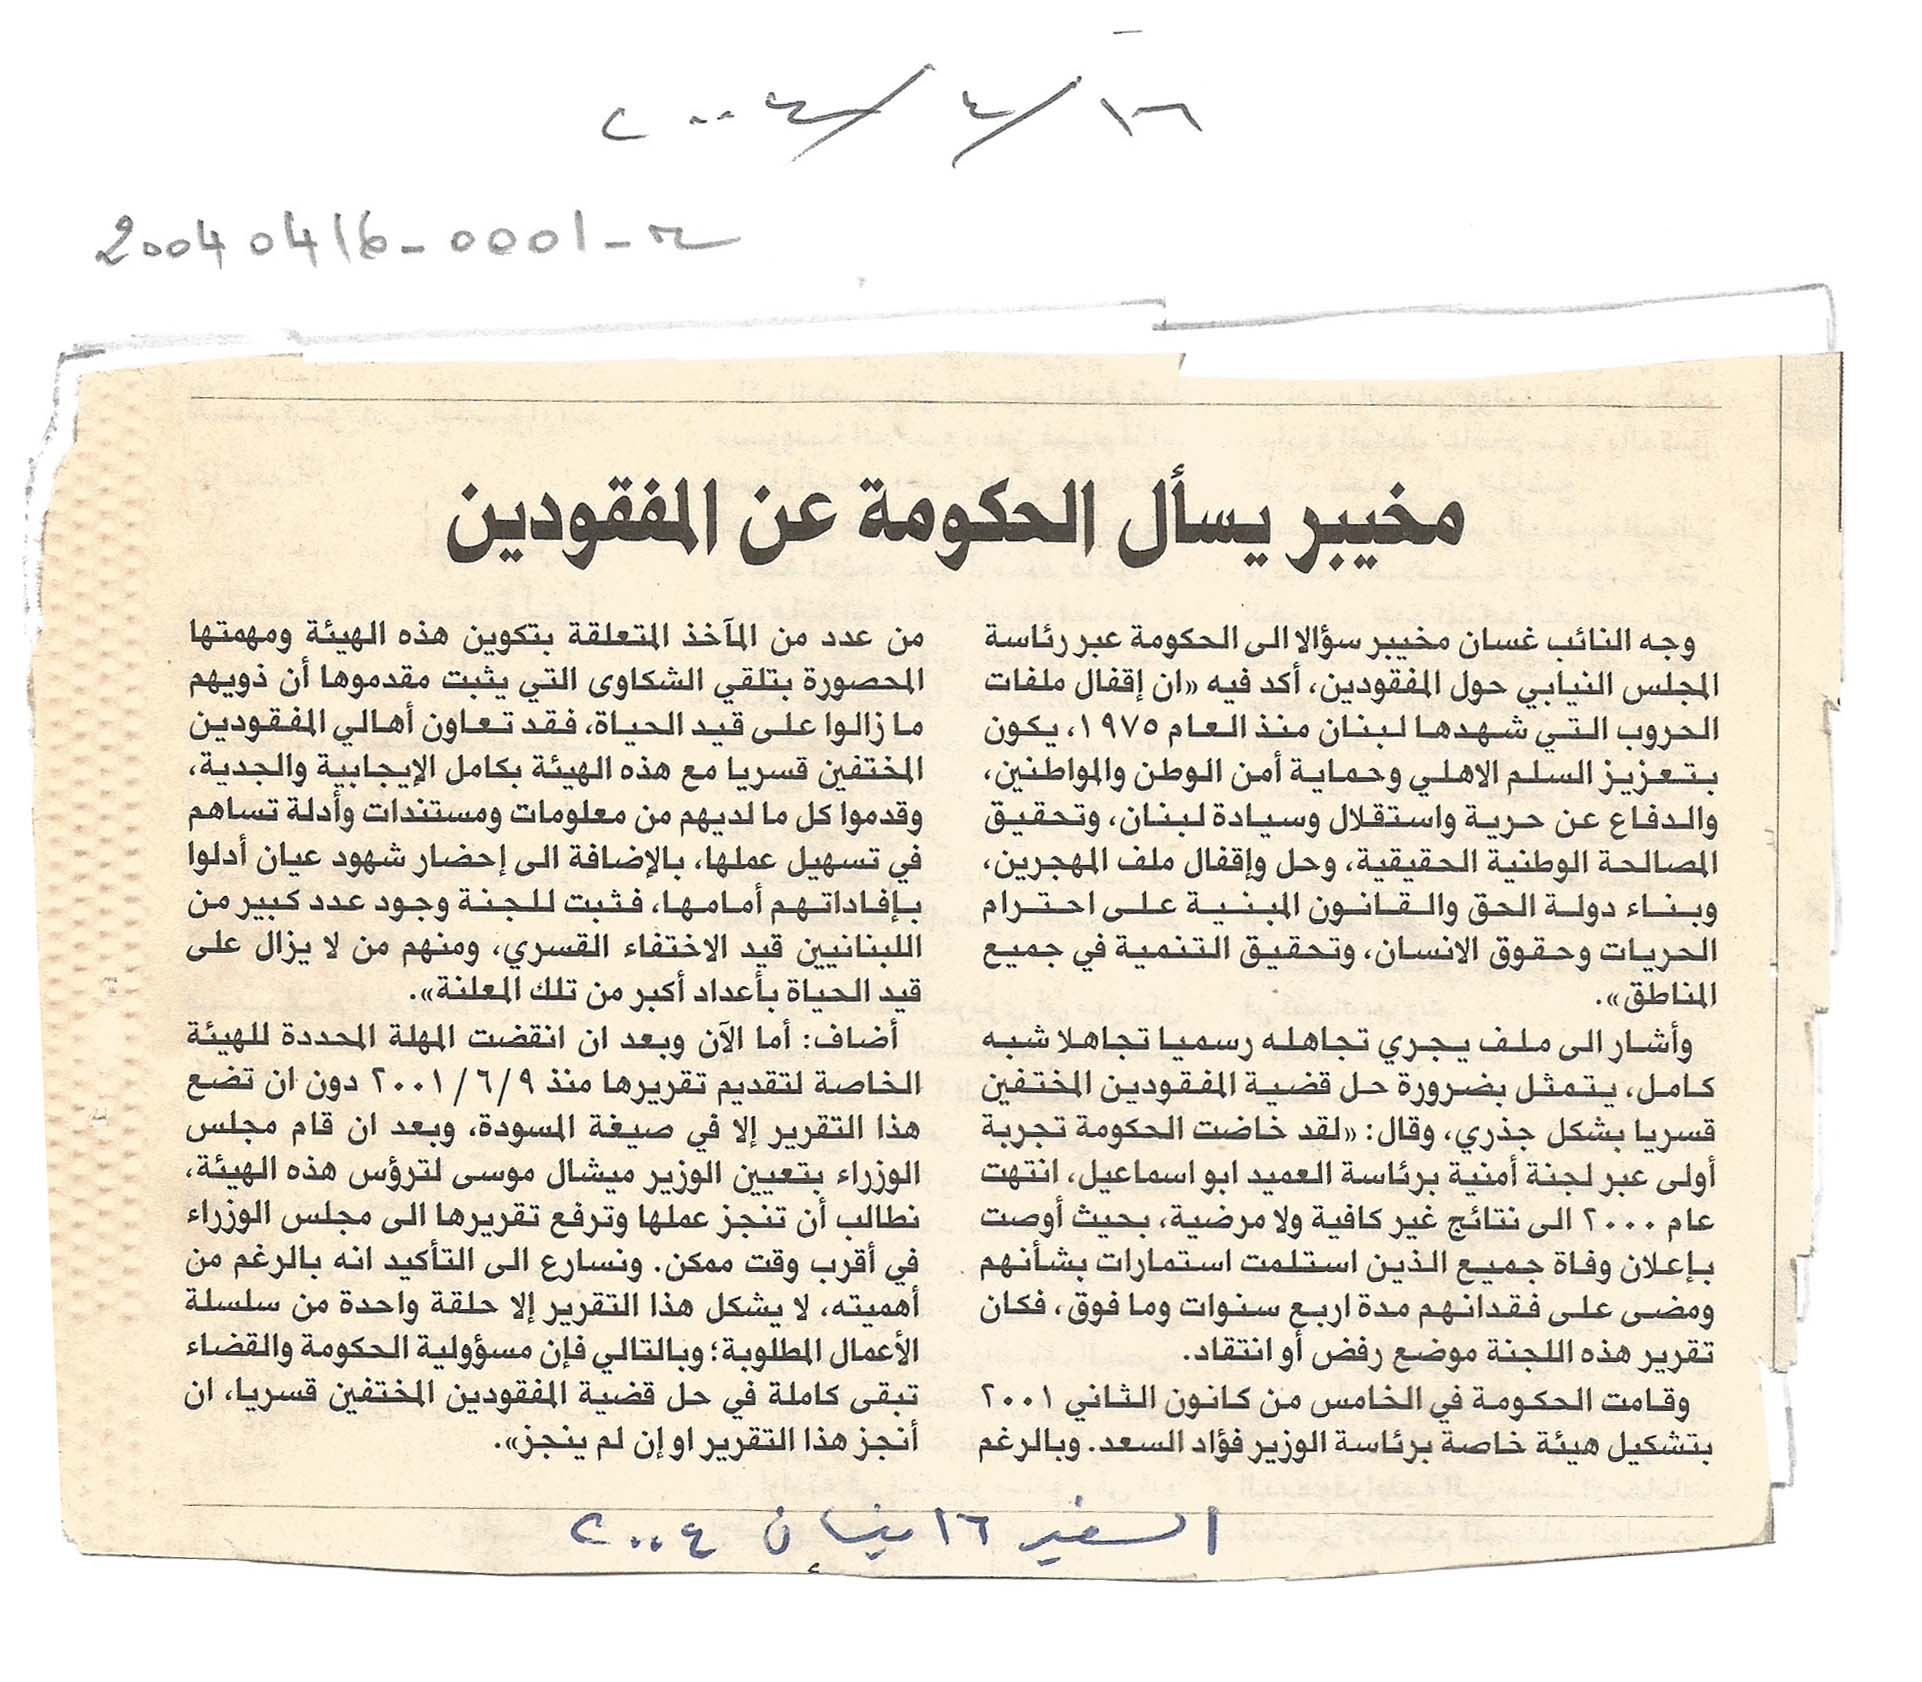 ١٦/٤/٢٠٠٤
20040416-0001-س
مخيبر يسأل الحكومة عن المفقودين
وجه النائب غسان مخيبر سؤالا الى الحكومة عبر رئاسة
المجلس النيابي حول المفقودين، أكد فيه «ان إقفال ملفات
الحروب التي شهدها لبنان منذ العام ١٩٧٥، يكون
بتعزيز السلم الاهلي وحماية أمن الوطن والمواطنين،
والدفاع عن حرية واستقلال وسيادة لبنان، وتحقيق
المصالحة الوطنية الحقيقية، وحل وإقفال ملف المهجرين،
وبناء دولة الحق والقانون المبنية على احترام
الحريات وحقوق الانسان، وتحقيق التنمية في جميع
المناطق».
وأشار الى ملف يجري تجاهله رسميا تجاهلا شبه
كامل، يتمثل بضرورة حل قضية المفقودين المختفين
قسريا بشكل جذري، وقال: «لقد خاضت الحكومة تجربة
أولى عبر لجنة أمنية برئاسة العميد ابو اسماعيل، انتهت
عام ٢٠٠٠ الى نتائج غير كافية ولا مرضية، بحيث أوصت
بإعلان وفاة جميع الذين استلمت استمارات بشأنهم
ومضى على فقدانهم مدة اربع سنوات وما فوق، فكان
تقرير هذه اللجنة موضع رفض أو انتقاد.
وقامت الحكومة في الخامس من كانون الثاني ٢٠٠١
بتشكيل هيئة خاصة برئاسة الوزير فؤاد السعد. وبالرغم
من عدد من المآخذ المتعلقة بتكوين هذه الهيئة ومهمتها
المحصورة بتلقي الشكاوى التي يثبت مقدموها أن ذويهم
ما زالوا على قيد الحياة، فقد تعاون أهالي المفقودين
المختفين قسريا مع هذه الهيئة بكامل الإيجابية والجدية،
وقدموا كل ما لديهم من معلومات ومستندات وأدلة تساهم
في تسهيل عملها، بالإضافة الى إحضار شهود عيان أدلوا
بإفاداتهم أمامها، فثبت للجنة وجود عدد كبير من
اللبنانيين قيد الاختفاء القسري، ومنهم من لا يزال على
قيد الحياة بأعداد أكبر من تلك المعلنة».
أضاف: أما الآن وبعد ان انقضت المهلة المحددة للهيئة
الخاصة لتقديم تقريرها منذ ٢٠٠١/٦/٩ دون ان تضع
هذا التقرير إلا في صيغة المسودة، وبعد ان قام مجلس
الوزراء بتعيين الوزير ميشال موسى لترؤس هذه الهيئة،
نطالب أن تنجز عملها وترفع تقريرها الى مجلس الوزراء
في أقرب وقت ممكن. ونسارع الى التأكيد انه بالرغم من
أهميته، لا يشكل هذا التقرير إلا حلقة واحدة من سلسلة
الأعمال المطلوبة؛ وبالتالي فإن مسؤولية الحكومة والقضاء
تبقى كاملة في حل قضية المفقودين المختفين قسريا، ان
أنجز هذا التقرير او إن لم ينجز».
السفير ١٦ نيسان ٢٠٠٤